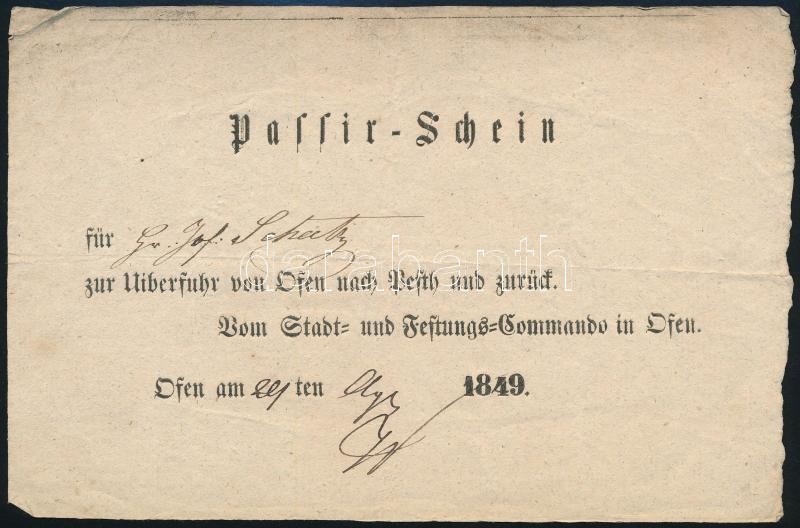 Passir-Schein
für Hr. Jos: Schatz
zur Uiberfuhr von Ofen nach Pesth und zurück.
darabanth
Vom Stadt- und Festungs-Commando in Ofen.
Ofen am ten 1849.